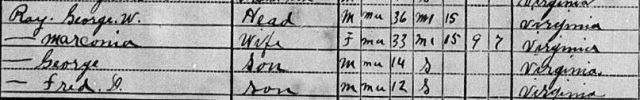 Virginia
Ray, George W. Head M Mu 36 M1 15 Virginia
— Marconia Wife F Mu 33 M1 15 9 7 Virginia
— George Son M Mu 14 S Virginia
— Fred D. Son M Mu 12 S Virginia